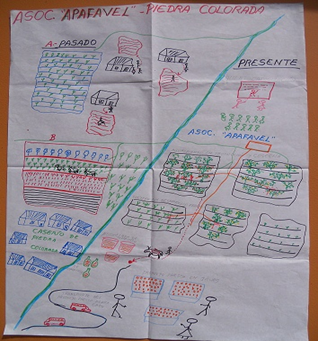 ASOC. "APAFAVEL" - PIEDRA COLORADA
A- PASADO
PRESENTE
ASOC. "APAFAVEL"
B
CASERIO DE
PIEDRA
COLORADA